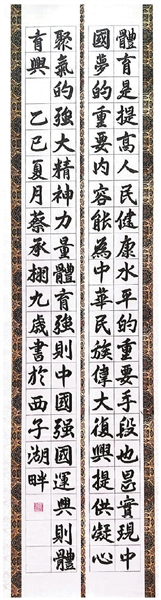 體育是提高人民健康水平的重要手段也是實現中
國夢的重要内容能為中華民族偉大復興提供凝心
聚氣的強大精神力量體育強則中國强國運興則體
育興 乙巳夏月蔡承栩九歲書於西子湖畔